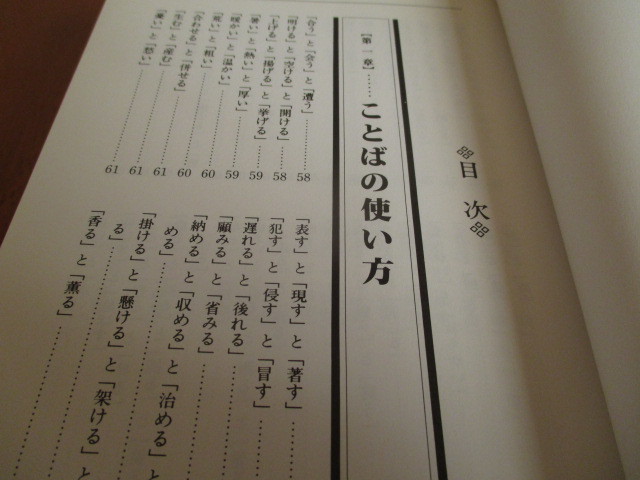 目次
【第一章】……ことばの使い方
「合う」と「会う」と「遭う」……58
「明ける」と「空ける」と「開ける」……58
「上げる」と「揚げる」と「挙げる」……59
「暑い」と「熱い」と「厚い」……59
「暖かい」と「温かい」……60
「荒い」と「粗い」……60
「合わせる」と「併せる」……61
「生む」と「産む」……61
「憂い」と「愁い」……61
「表す」と「現す」と「著す」……
「犯す」と「侵す」と「冒す」
「遅れる」と「後れる」……
「顧みる」と「省みる」……
「納める」と「収める」と「治める」と
める」……
「掛ける」と「懸ける」と「架ける」と
る」……
「香る」と「薫る」……